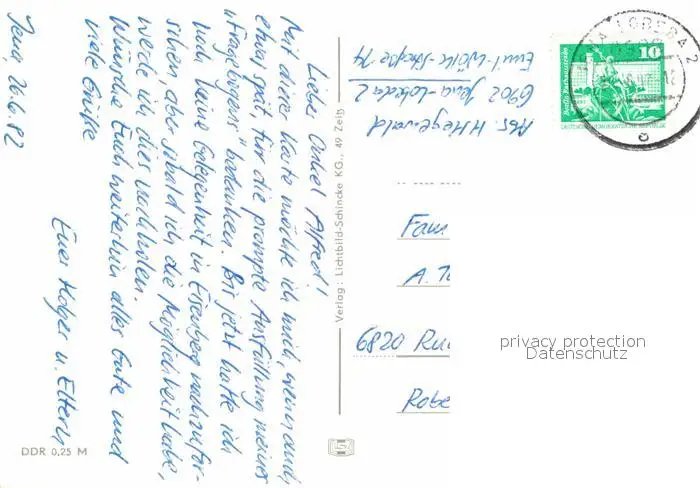 Lieber Onkel Alfred!
Mit dieser Karte möchte ich mich, wenn auch
etwas spät, für die prompte Ausfüllung meines
"Fragebogens" bedanken. Bis jetzt hatte ich
noch keine Gelegenheit in Eisenberg nachzufor-
schen, aber sobald ich die Möglichkeit habe,
werde ich dies nachholen.
Wünsche Euch weiterhin alles Gute und
viele Grüße
Euer Holger u. Eltern
Jena, 26.6.82
DDR 0,25 M
Verlag: Lichtbild-Schincke KG., 49 Zeitz
Abs. H. Hegewald
6902 Jena-Lobeda 2
Emil-Wölk-Straße
10
LOBEDA 2
Fam
A.
6820 Ru
Robe
privacy protection
Datenschutz